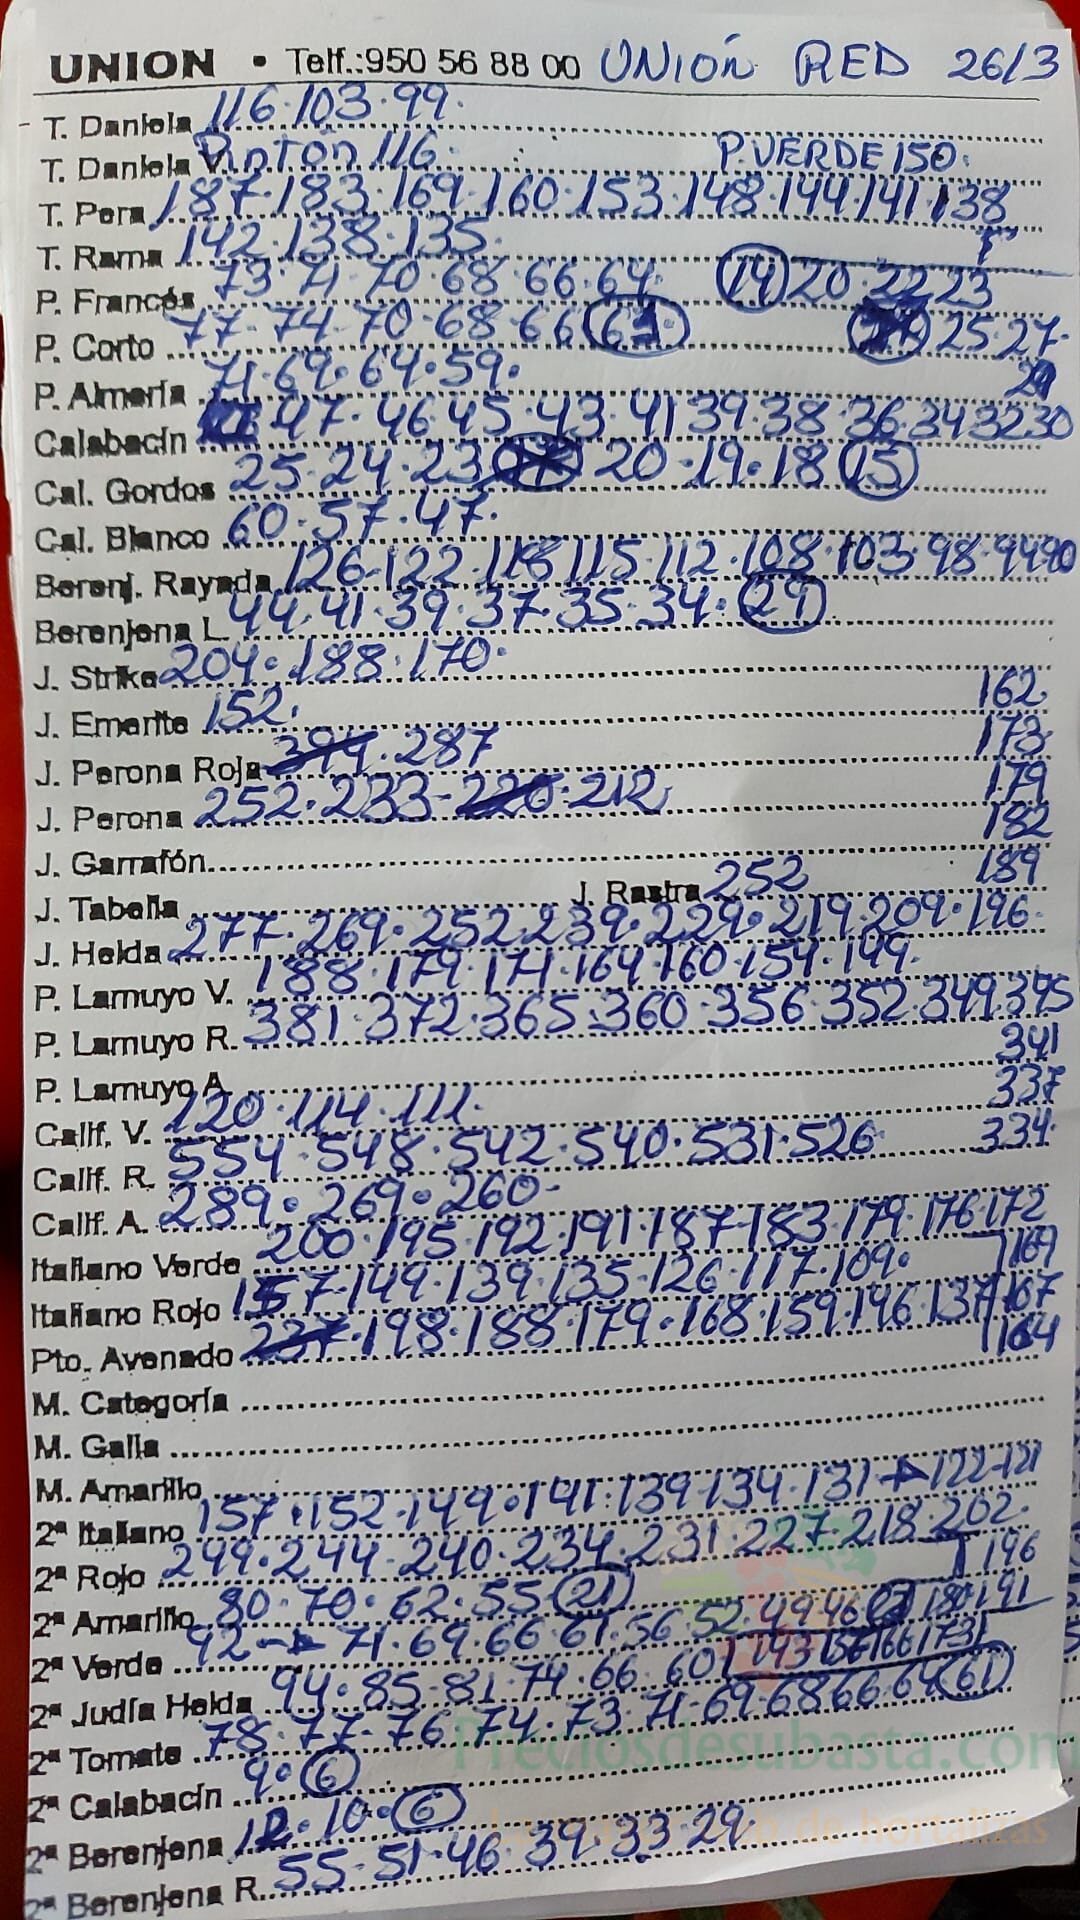 UNION • Telf.:950 56 88 00 UNIÓN RED 26/3
T. Daniela 116·103·99·
T. Daniela V. PINTÓN 116· P.VERDE 150·
T. Pera 187·183·169·160·153·148·144·141·138
T. Rama 142·138·135·
P. Francés 73·71·70·68·66·64· 14 20·22 23
P. Corto 77·74·70·68·66 25·27·
P. Almería 71·69·64·59·
Calabacín 47·46·45·43·41 39·38·36·34 32 30
Cal. Gordos 25·24·23 20·19·18 15
Cal. Blanco 60·57·47·
Berenj. Rayada 126·122·118 115·112·108·103·98·94 90
Berenjena L. 44·41·39·37·35·34· 29
J. Strike 204·188·170·
J. Emerite 152· 162
J. Perona Roja 394·287 173
J. Perona 252·233·220·212 179
182
J. Garrafón 189
J. Tabella J. Rastra 252
J. Helda 277·269·252·239·229·219·209·196·
P. Lamuyo V. 188·179·171·164·160·154·149·
P. Lamuyo R. 381·372·365·360·356·352·349·345
341
P. Lamuyo A. 337
Calif. V. 120·114·111· 334·
Calif. R. 554·548·542·540·531·526
Calif. A. 289·269·260·
Italiano Verde 200·195·192·191·187·183·179·176·172
169
Italiano Rojo 157·149·139·135·126·117·109· 167
Pto. Avenado 237·198·188·179·168·159·146·137 164
M. Categoría
M. Galia
M. Amarillo
2ª Italiano 157·152·149·141·139·134·131 122·121
2ª Rojo 249·244·240·234·231·227·218·202·
196
2ª Amarillo 80·70·62·55 21 191
2ª Verde 92 71·69·66·61·56·52·49·46
2ª Judía Helda 94·85·81·74·66·60 143 156 166 173
2ª Tomate 78·77·76·74·73·71·69·68 66·64 61
Preciosdesubasta.com
2ª Calabacín 9·6
2ª Berenjena 12·10·6
de hortalizas
2ª Berenjena R. 55·51·46·39·33·29